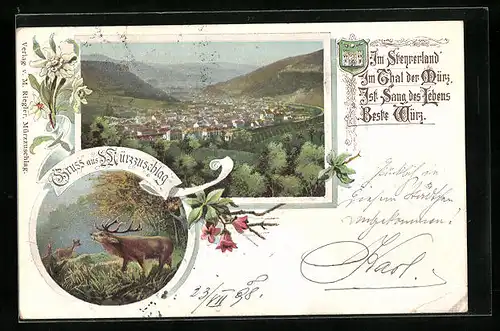 Verlag v. M. Riegler, Mürzzuschlag.
Gruss aus Mürzzuschlag
Im Steyrerland
Im Thal der Mürz,
Ist Sang des Lebens
Beste Würz.
Glücklich in
diesem Städtchen
angekommen!
Karl.
23/VII 98.